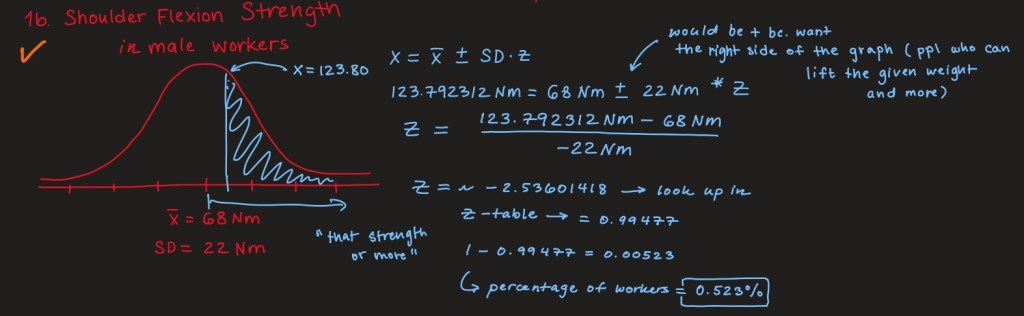 1b. Shoulder Flexion Strength
in male workers
X = 123.80
x̄ = 68 Nm
SD = 22 Nm
"that strength
or more"
X = x̄ ± SD · Z
would be + bc. want
the right side of the graph (ppl who can
lift the given weight
and more)
123.792312 Nm = 68 Nm ± 22 Nm * Z
Z = 123.792312 Nm - 68 Nm
-22 Nm
Z = ~ -2.53601418 → look up in
Z-table → = 0.99477
1 - 0.99477 = 0.00523
↳ percentage of workers = 0.523%